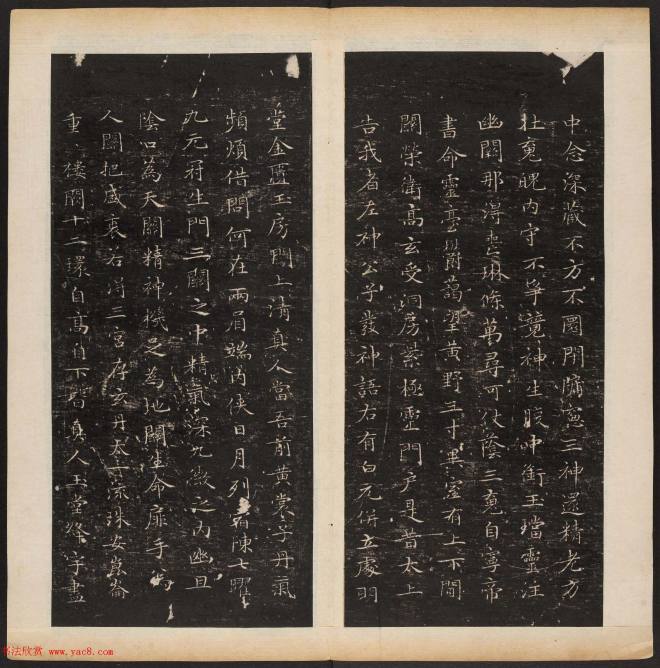 中念深藏不方不圓閉牖窓三神還精老方
壮魂魄内守不爭競神生腹中銜玉璫靈注
幽闕那得喪琳條萬尋可仗蔭三魂自寧帝
書命靈臺欝藹望黄野三寸異室有上下間
關榮衛高玄受洞房紫極靈門户是昔太上
告我者左神公子發神語右有白元併立處明
堂金匱玉房間上清真人當吾前黄裳子丹氣
頻煩借問何在兩眉端内俠日月列宿陳七曜
九元冠生門三關之中精氣深九微之内幽且
陰口為天關精神機足為地關生命扉手為
人關把盛衰右得三宫存玄丹太一流珠安崑崙
重〻樓閣十二環自高自下皆真人玉堂絳宇盡
书法欣赏 www.yac8.com